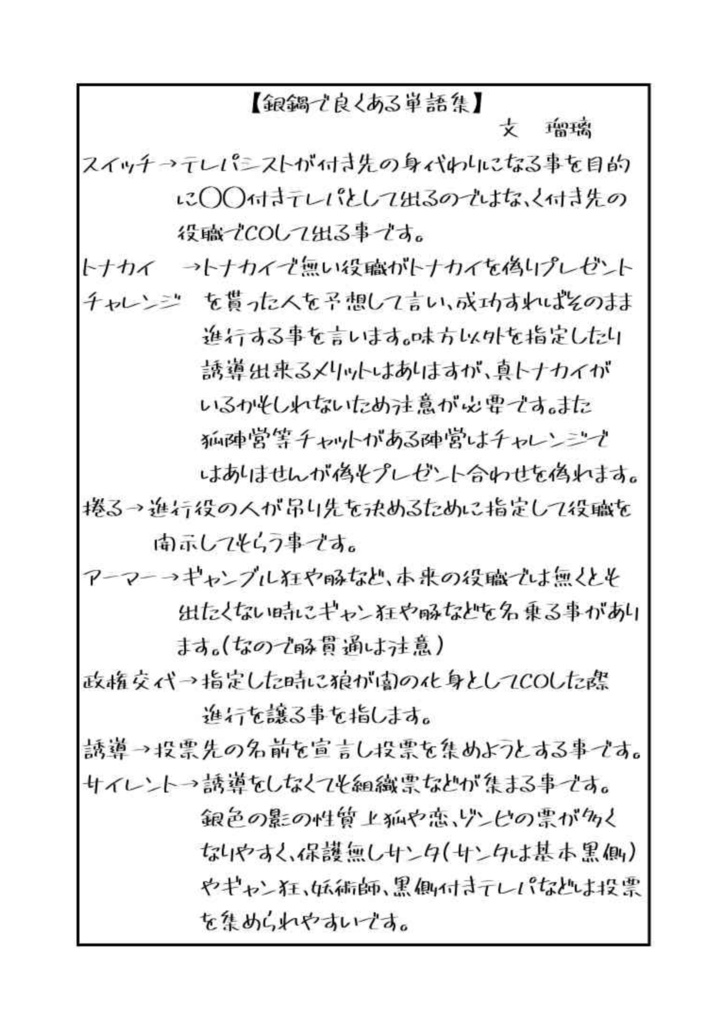 【銀鍋で良くある単語集】
文 瑠璃
スイッチ→テレパシストが付き先の身代わりになる事を目的
に〇〇付きテレパとして出るのではなく付き先の
役職でCOして出る事です。
トナカイ →トナカイで無い役職がトナカイを偽りプレゼント
チャレンジ を貰った人を予想して言い、成功すればそのまま
進行する事を言います。味方以外を指定したり
誘導出来るメリットはありますが、真トナカイが
いるかもしれないため注意が必要です。また
狐陣営等チャットがある陣営はチャレンジで
はありませんが偽もプレゼント合わせを偽れます。
捲る→進行役の人が吊り先を決めるために指定して役職を
開示してもらう事です。
アーマー→ギャンブル狂や豚など、本来の役職では無くとも
出たくない時にギャン狂や豚などを名乗る事があり
ます。(なので豚貫通は注意)
政権交代→指定した時に狼が闇の化身としてCOした際
進行を譲る事を指します。
誘導→投票先の名前を宣言し投票を集めようとする事です。
サイレント→誘導をしなくても組織票などが集まる事です。
銀色の影の性質上狐や恋、ゾンビの票が多く
なりやすく、保護無しサンタ(サンタは基本黒側)
やギャン狂、妖術師、黒側付きテレパなどは投票
を集められやすいです。